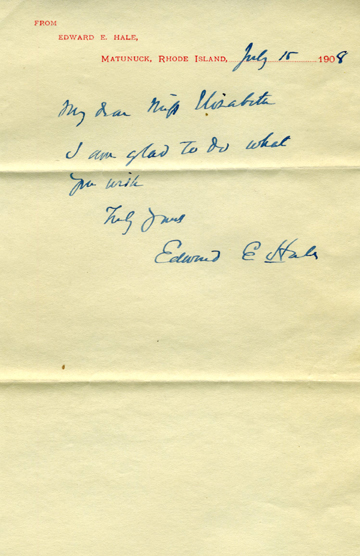 FROM
EDWARD E. HALE,
MATUNUCK, RHODE ISLAND, July 15 1908
My dear Miss Elizabeth
I am glad to do what
you wish
Truly Yours
Edward E Hale